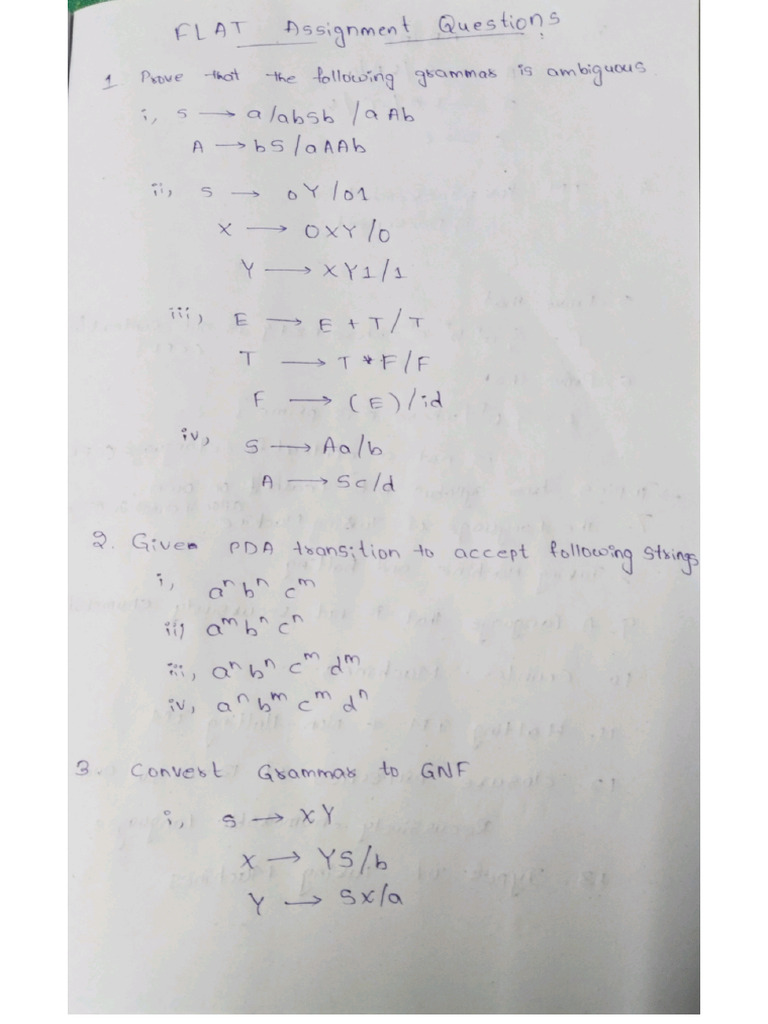 FLAT Assignment Questions
1 Prove that the following grammar is ambiguous
i, S → a/absb /aAb
A → bS/aAAb
ii, S → 0Y/01
X → 0XY/0
Y → XY1/1
iii, E → E + T/T
T → T * F/F
F → (E)/id
iv, S → Aa/b
A → Sc/d
2. Given PDA transition to accept following strings
i, aⁿ bⁿ cᵐ
ii) aᵐ bⁿ cⁿ
iii, aⁿ bⁿ cᵐ dᵐ
iv, aⁿ bᵐ cᵐ dⁿ
3. Convert Grammar to GNF
i, S → XY
X → YS/b
Y → SX/a